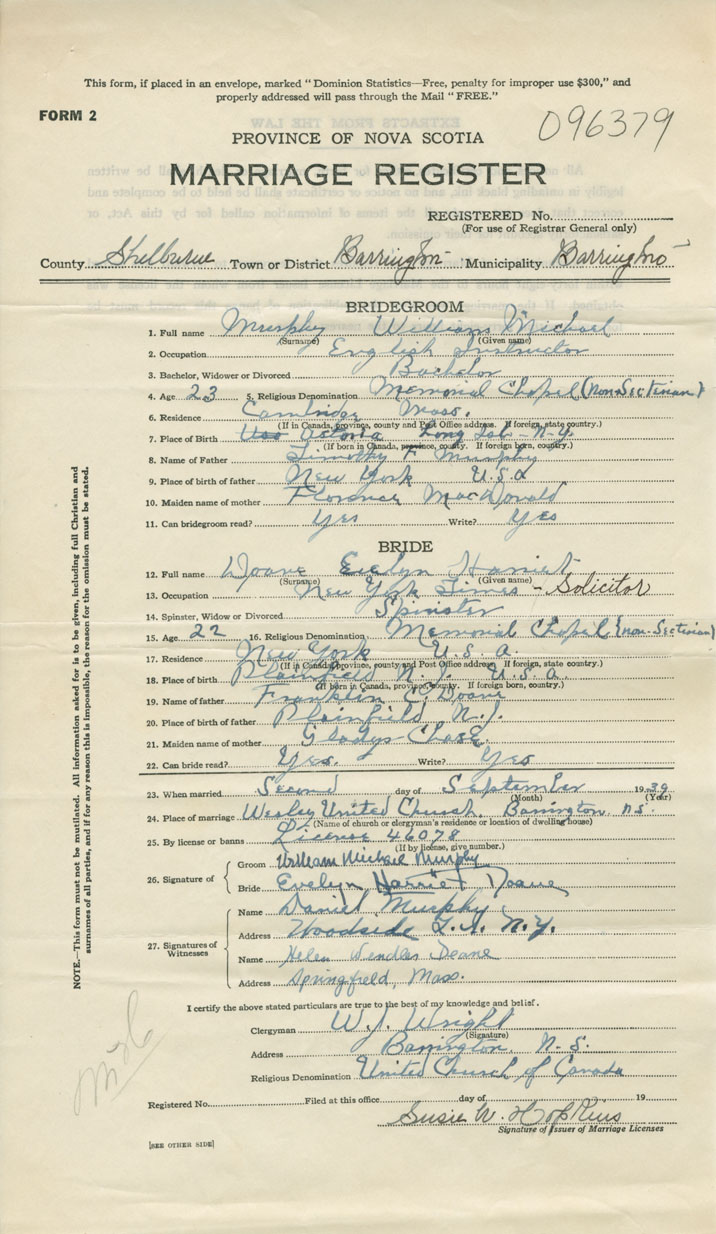 This form, if placed in an envelope, marked "Dominion Statistics—Free, penalty for improper use $300," and
properly addressed will pass through the Mail "FREE."
FORM 2
096379
PROVINCE OF NOVA SCOTIA
MARRIAGE REGISTER
REGISTERED No.
(For use of Registrar General only)
County Shelburne Town or District Barrington Municipality Barrington
BRIDEGROOM
1. Full name Murphy William Michael
(Surname) (Given name)
2. Occupation English Instructor
3. Bachelor, Widower or Divorced Bachelor
4. Age 23 5. Religious Denomination Memorial Chapel (Non-Sectarian)
6. Residence Cambridge Mass.
(If in Canada, province, county and Post Office address. If foreign, state country.)
7. Place of Birth Astoria Long Isl- N.Y.
(If born in Canada, province, county. If foreign born, country.)
8. Name of Father Timothy F Murphy
9. Place of birth of father New York U.S.A
10. Maiden name of mother Florence MacDonald
11. Can bridegroom read? Yes Write? Yes
BRIDE
12. Full name Doane Evelyn Harriet
(Surname) (Given name)
13. Occupation New York Times - Solicitor
14. Spinster, Widow or Divorced Spinster
15. Age 22 16. Religious Denomination Memorial Chapel (non-Sectarian)
17. Residence New York U.S.A.
(If in Canada, province, county and Post Office address. If foreign, state country.)
18. Place of birth Plainfield N.J. U.S.A.
(If born in Canada, province, county. If foreign born, country.)
19. Name of father Franklin C Doane
20. Place of birth of father Plainfield N.J.
21. Maiden name of mother Gladys Chase
22. Can bride read? Yes. Write? Yes
23. When married Second day of September 1939
(Month) (Year)
24. Place of marriage Wesley United Church, Barrington, N.S.
(Name of church or clergyman's residence or location of dwelling house)
25. By license or banns License 46078
(If by license, give number.)
26. Signature of Groom William Michael Murphy
Bride Evelyn Harriet Doane
27. Signatures of Witnesses
Name Daniel Murphy
Address Woodside L.I. N.Y.
Name Helen Wendler Doane
Address Springfield, Mass.
I certify the above stated particulars are true to the best of my knowledge and belief.
Clergyman W.J. Wright
(Signature)
Address Barrington, N.S.
Religious Denomination United Church of Canada
Registered No. Filed at this office day of 19
Susie W. Hopkins
Signature of Issuer of Marriage Licenses
[SEE OTHER SIDE]
NOTE.—This form must not be mutilated. All information asked for is to be given, including full Christian and
surnames of all parties, and if for any reason this is impossible, the reason for the omission must be stated.